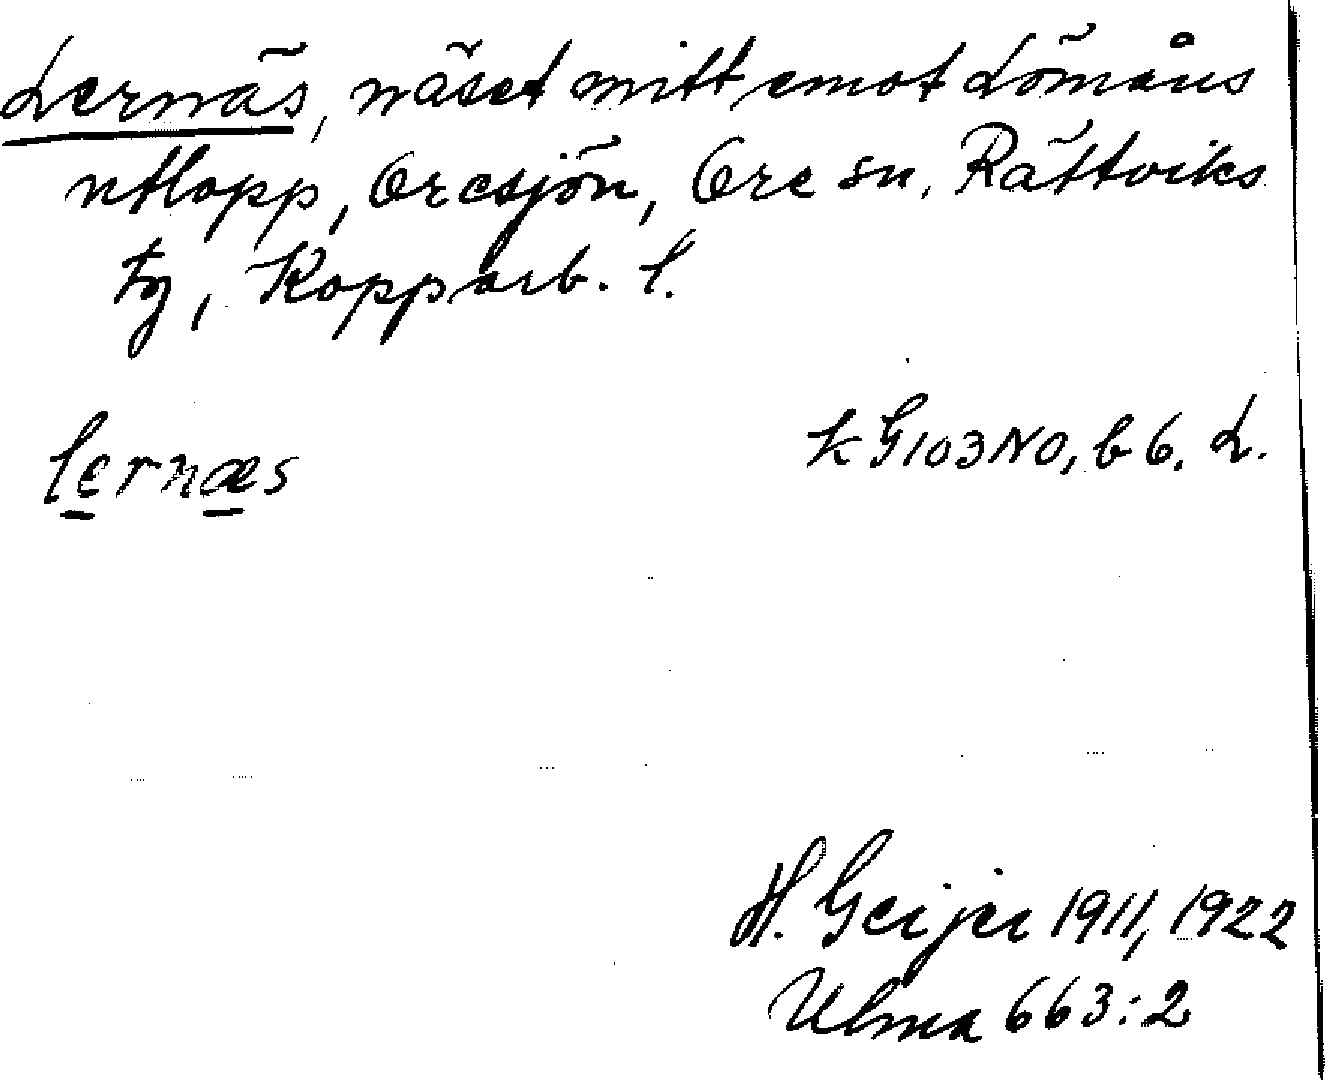 Lernäs, näset mitt emot Lömåns
utlopp, Oresjön, Ore sn, Rättviks
tg, Kopparb. l.
lernæs
k G 103 NO, b 6. L.
H. Geijer 1911, 1922
Ulma 663:2